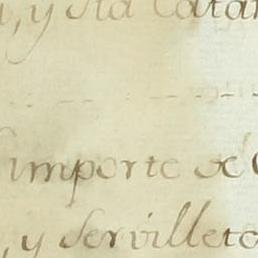 , y Sta Catar
importe de
, y servillete